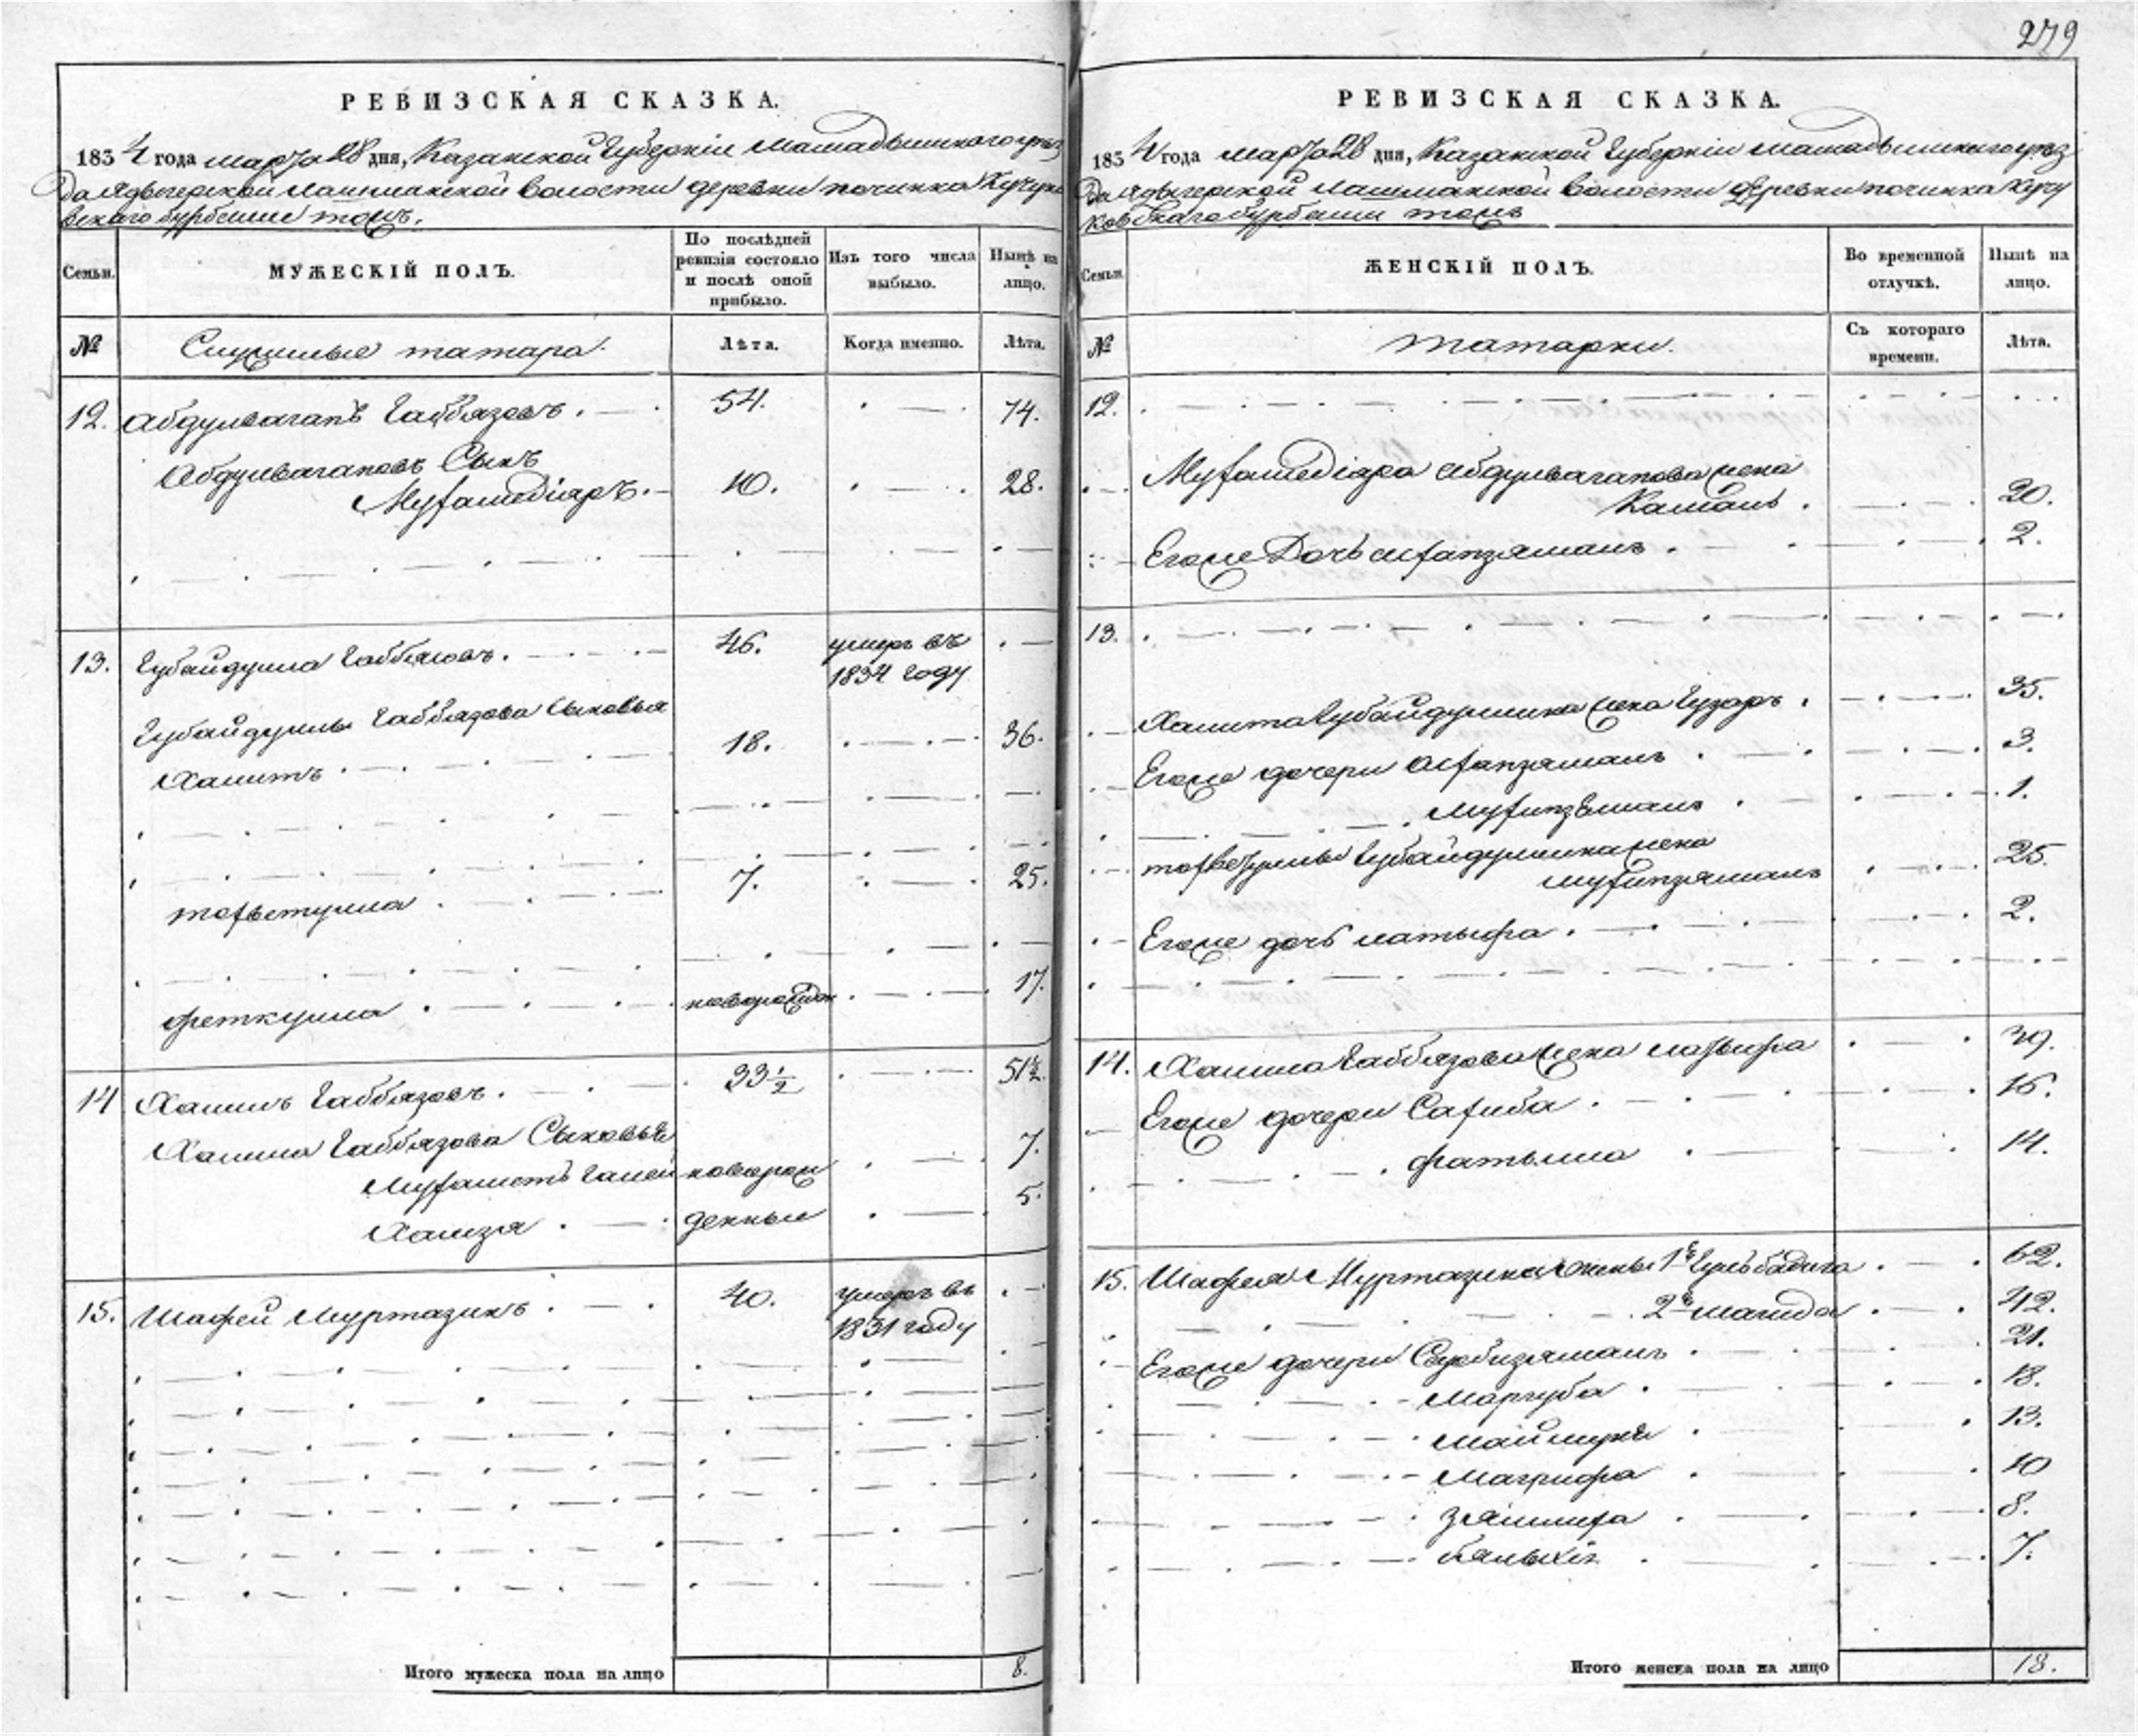 279
РЕВИЗСКАЯ СКАЗКА.
1834 года марта 28 дня, Казанской Губернiи Мамадышского уез
да Ядыгерской лашманской волости деревни починка Кучуко
вскаго Бурбаши тожъ.
Семьи.
МУЖЕСКIЙ ПОЛЪ.
По послѣдней ревизiи состояло и послѣ оной прибыло.
Изъ того числа выбыло.
Нынѣ на лицо.
№
Служилые татара.
Лѣта.
Когда именно.
Лѣта.
12. Абдулвагапъ Габбязовъ. 54. 74.
Абдулвагаповъ Сынъ
Мухамедiаръ. 10. 28.
13. Губайдулла Габбязовъ. 46. умеръ въ
1834 году
Губайдуллы Габбязова Сыновья
Хамитъ 18. 36.
7. 25.
феткулла новорожден 17.
14 Халилъ Габбязовъ. 33½ 51½
Халила Габбязова Сыновья
новорож 7.
Хамзя денные 5.
15. Шафей Муртазинъ 40. умеръ въ
1831 году
Итого мужеска пола на лицо 8.
РЕВИЗСКАЯ СКАЗКА.
1834 года марта 28 дня, Казанской Губернiи Мамадышскаго уез
да Ядыгерской лашманской волости деревни починка Кучу
ковскаго Бурбаши тожъ
Семьи.
ЖЕНСКIЙ ПОЛЪ.
Во временной отлучкѣ.
Нынѣ на лицо.
№
татарки.
Съ котораго времени.
Лѣта.
12.
Мухамедiара Абдулвагапова жена
Камаль 20.
Егоже Дочь Махапзямалъ 2.
13.
Хамита Губайдуллина жена Гузаръ 35.
Егоже дочери Махапзямалъ 3.
Мухипзямалъ 1.
Губайдуллина жена
Мухипзямалъ 25.
Егоже дочь Латыфа 2.
14. Халила Габбязова жена Латыфа 39.
Егоже дочери Сахиба 16.
фатыма 14.
15. Шафея Муртазина жены 1я Гульбадига 62.
2я Магида 42.
Егоже дочери 21.
Маргуба 18.
Маймуня 13.
Магрифа 10
8.
7.
Итого женска пола на лицо 18.